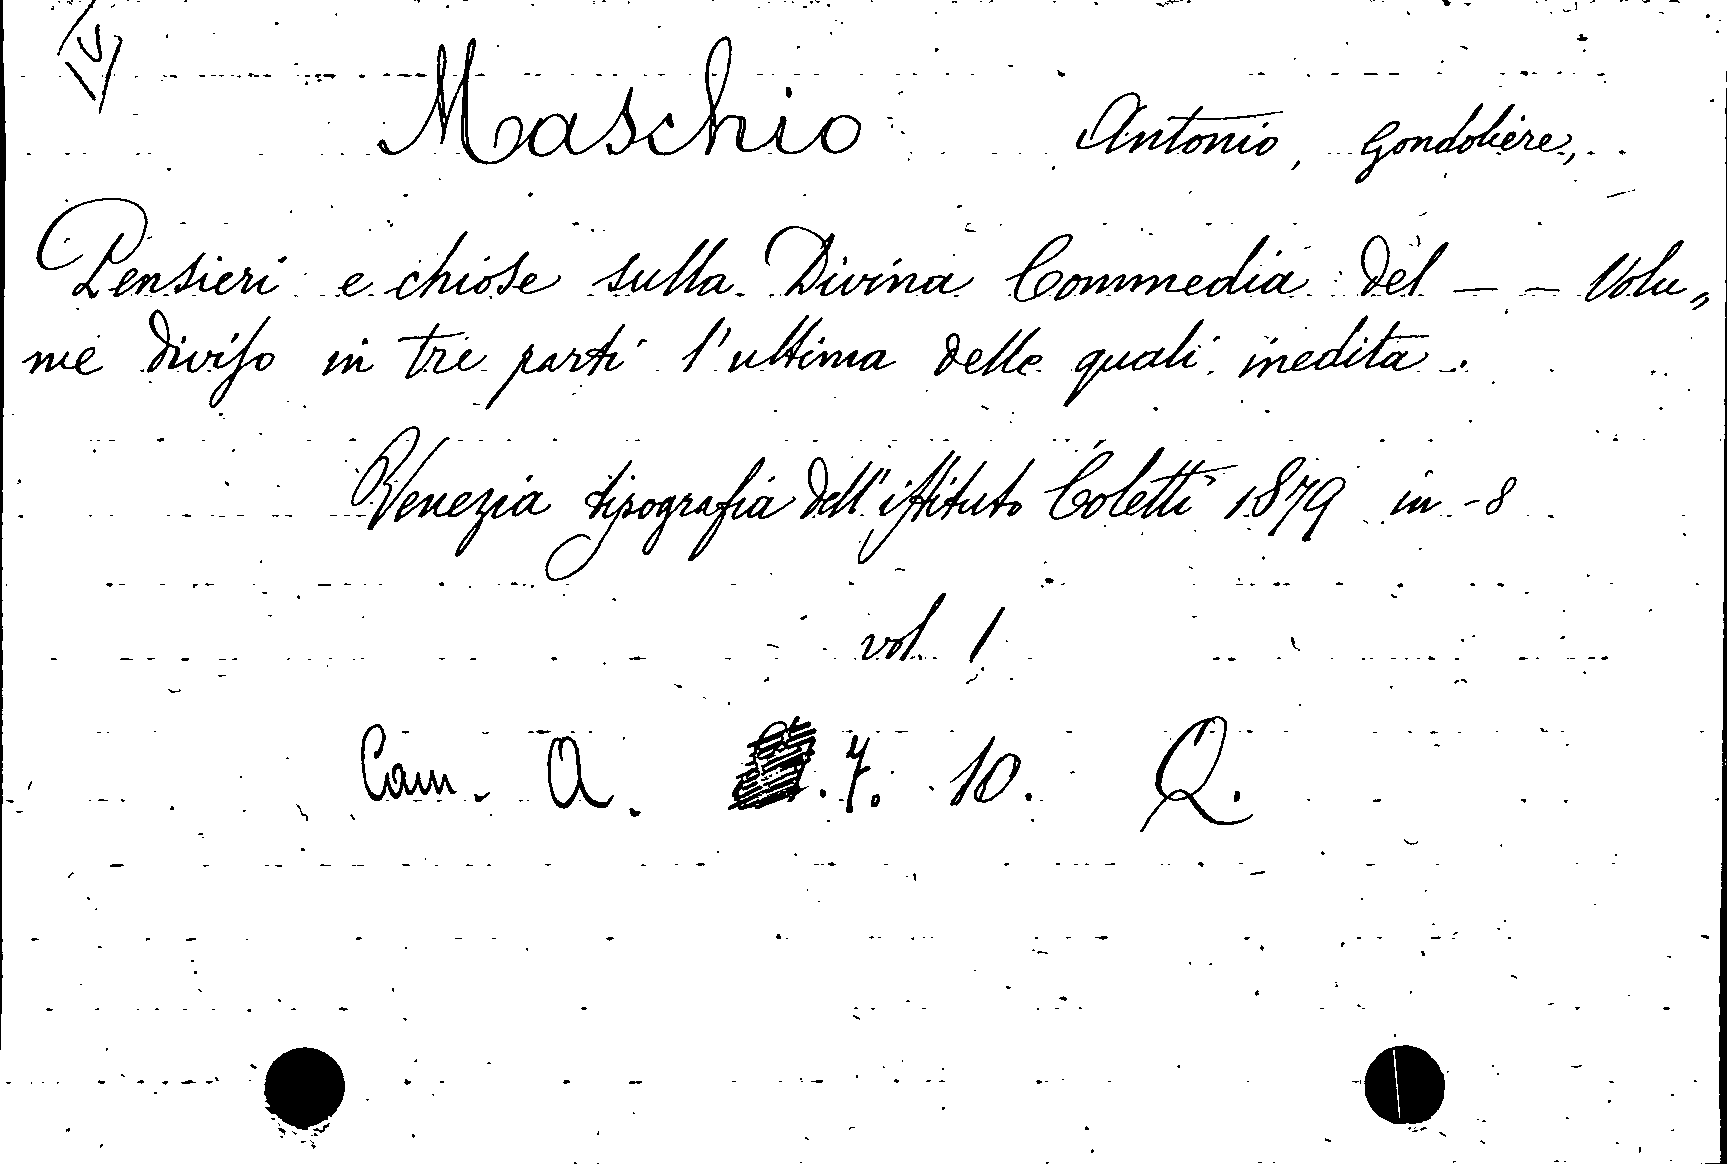 IV
Maschio Antonio, Gondoliere,
Pensieri e chiose sulla Divina Commedia del — — Volu„
me diviso in tre parti l'ultima delle quali inedita.
Venezia tipografia dell'istituto Coletti 1879 in-8
vol 1
Cam. A. .7. 10. Q.